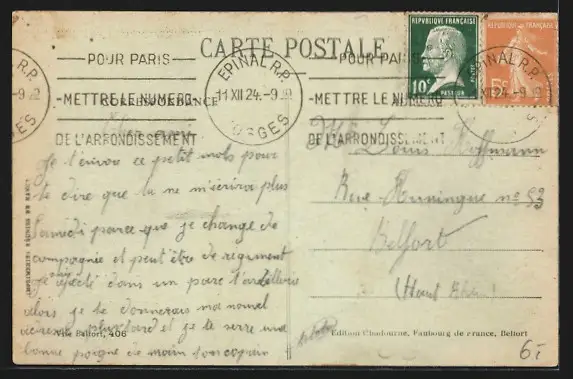 CARTE POSTALE
POUR PARIS
METTRE LE NUMERO
DE L'ARRONDISSEMENT
EPINAL R.P.
11 XII 24 - 9
VOSGES
POUR PARIS
METTRE LE NUMERO
DE L'ARRONDISSEMENT
EPINAL R.P.
R.P.
CORRESPONDANCE
REPUBLIQUE FRANÇAISE
10c
PASTEUR
POSTES
REPUBLIQUE FRANÇAISE
5c
Je t'envoie ce petit mots pour
te dire que tu ne m'écriras plus
Samedi parce que je change de
compagnie et peut être de regiment
dans un parc l'artillerie
alors je te donnerais ma nouvel
adresse plus tard et je te serre une
bonne poigne de main ton copain
Louis Hoffmann
Rue Huningue no 53
Belfort
(Haut Rhin)
Belfort, 406
Edition Chadourne, Faubourg de France, Belfort
6.-